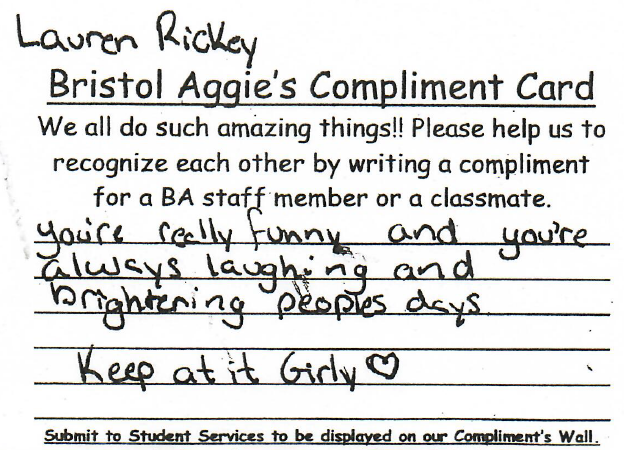 Lauren Rickey
Bristol Aggie's Compliment Card
We all do such amazing things!! Please help us to
recognize each other by writing a compliment
for a BA staff member or a classmate.
you're really funny and you're
always laughing and
brightening peoples days
Keep at it Girly ♡
Submit to Student Services to be displayed on our Compliment's Wall.